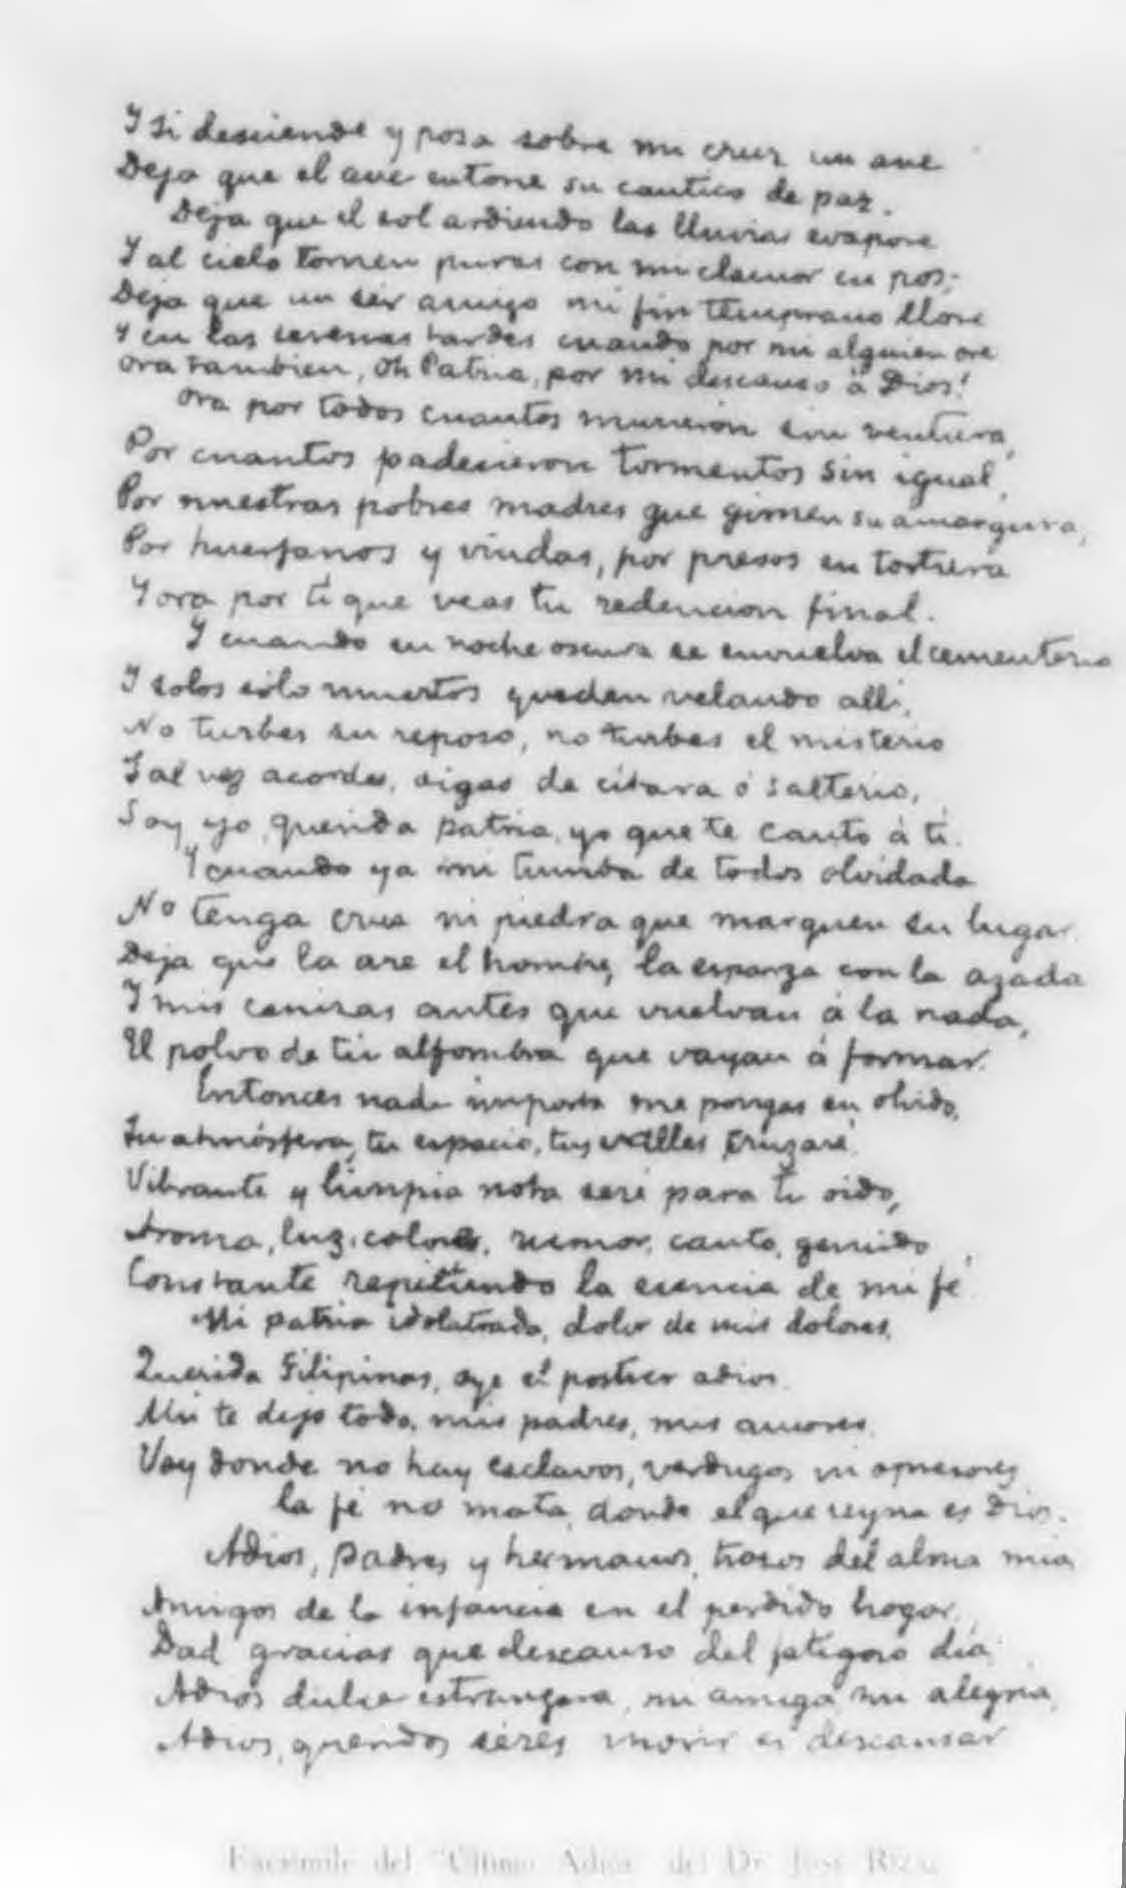 Y si desciende y posa sobre mi cruz un ave
Deja que el ave entone su cantico de paz.
Deja que el sol ardiendo las lluvias evapore
Y al cielo tornen puras con mi clamor en pos;
Deja que un sér amigo mi fin temprano llore
Y en las serenas tardes cuando por mi alguien ore
Ora tambien, Oh Patria, por mi descanso á Dios!
Ora por todos cuantos murieron sin ventura,
Por cuantos padecieron tormentos sin igual,
Por nuestras pobres madres que gimen su amargura,
Por huerfanos y viudas, por presos en tortura
Y ora por tí que veas tu redencion final.
Y cuando en noche oscura se envuelva el cementerio
Y solos sólo muertos queden velando allí,
No turbes su reposo, no turbes el misterio
Tal vez acordes oigas de citara ó salterio,
Soy yo, querida patria, yo que te canto á ti.
Y cuando ya mi tumba de todos olvidada
No tenga cruz ni piedra que marquen su lugar
Deja que la are el hombre, la esparza con la azada
Y mis cenizas antes que vuelvan á la nada,
El polvo de tu alfombra que vayan á formar.
Entonces nada importa me pongas en olvido,
Tu atmósfera, tu espacio, tus valles cruzaré
Vibrante y limpia nota seré para tu oido,
Aroma, luz, colores, rumor, canto, gemido
Constante repitiendo la esencia de mi fé
Mi patria idolatrada, dolor de mis dolores,
Querida Filipinas, oye el postrer adios.
Ahi te dejo todo, mis padres, mis amores.
Voy donde no hay esclavos, verdugos ni opresores
la fé no mata, donde el que reyna es Dios.
Adios, padres y hermanos, trozos del alma mia
Amigos de la infancia en el perdido hogar
Dad gracias que descanso del fatigoso dia
Adios dulce estrangera, mi amiga, mi alegria,
Adios, queridos séres morir es descansar
Facsimile del "Ultimo Adios" del Dr. José Rizal